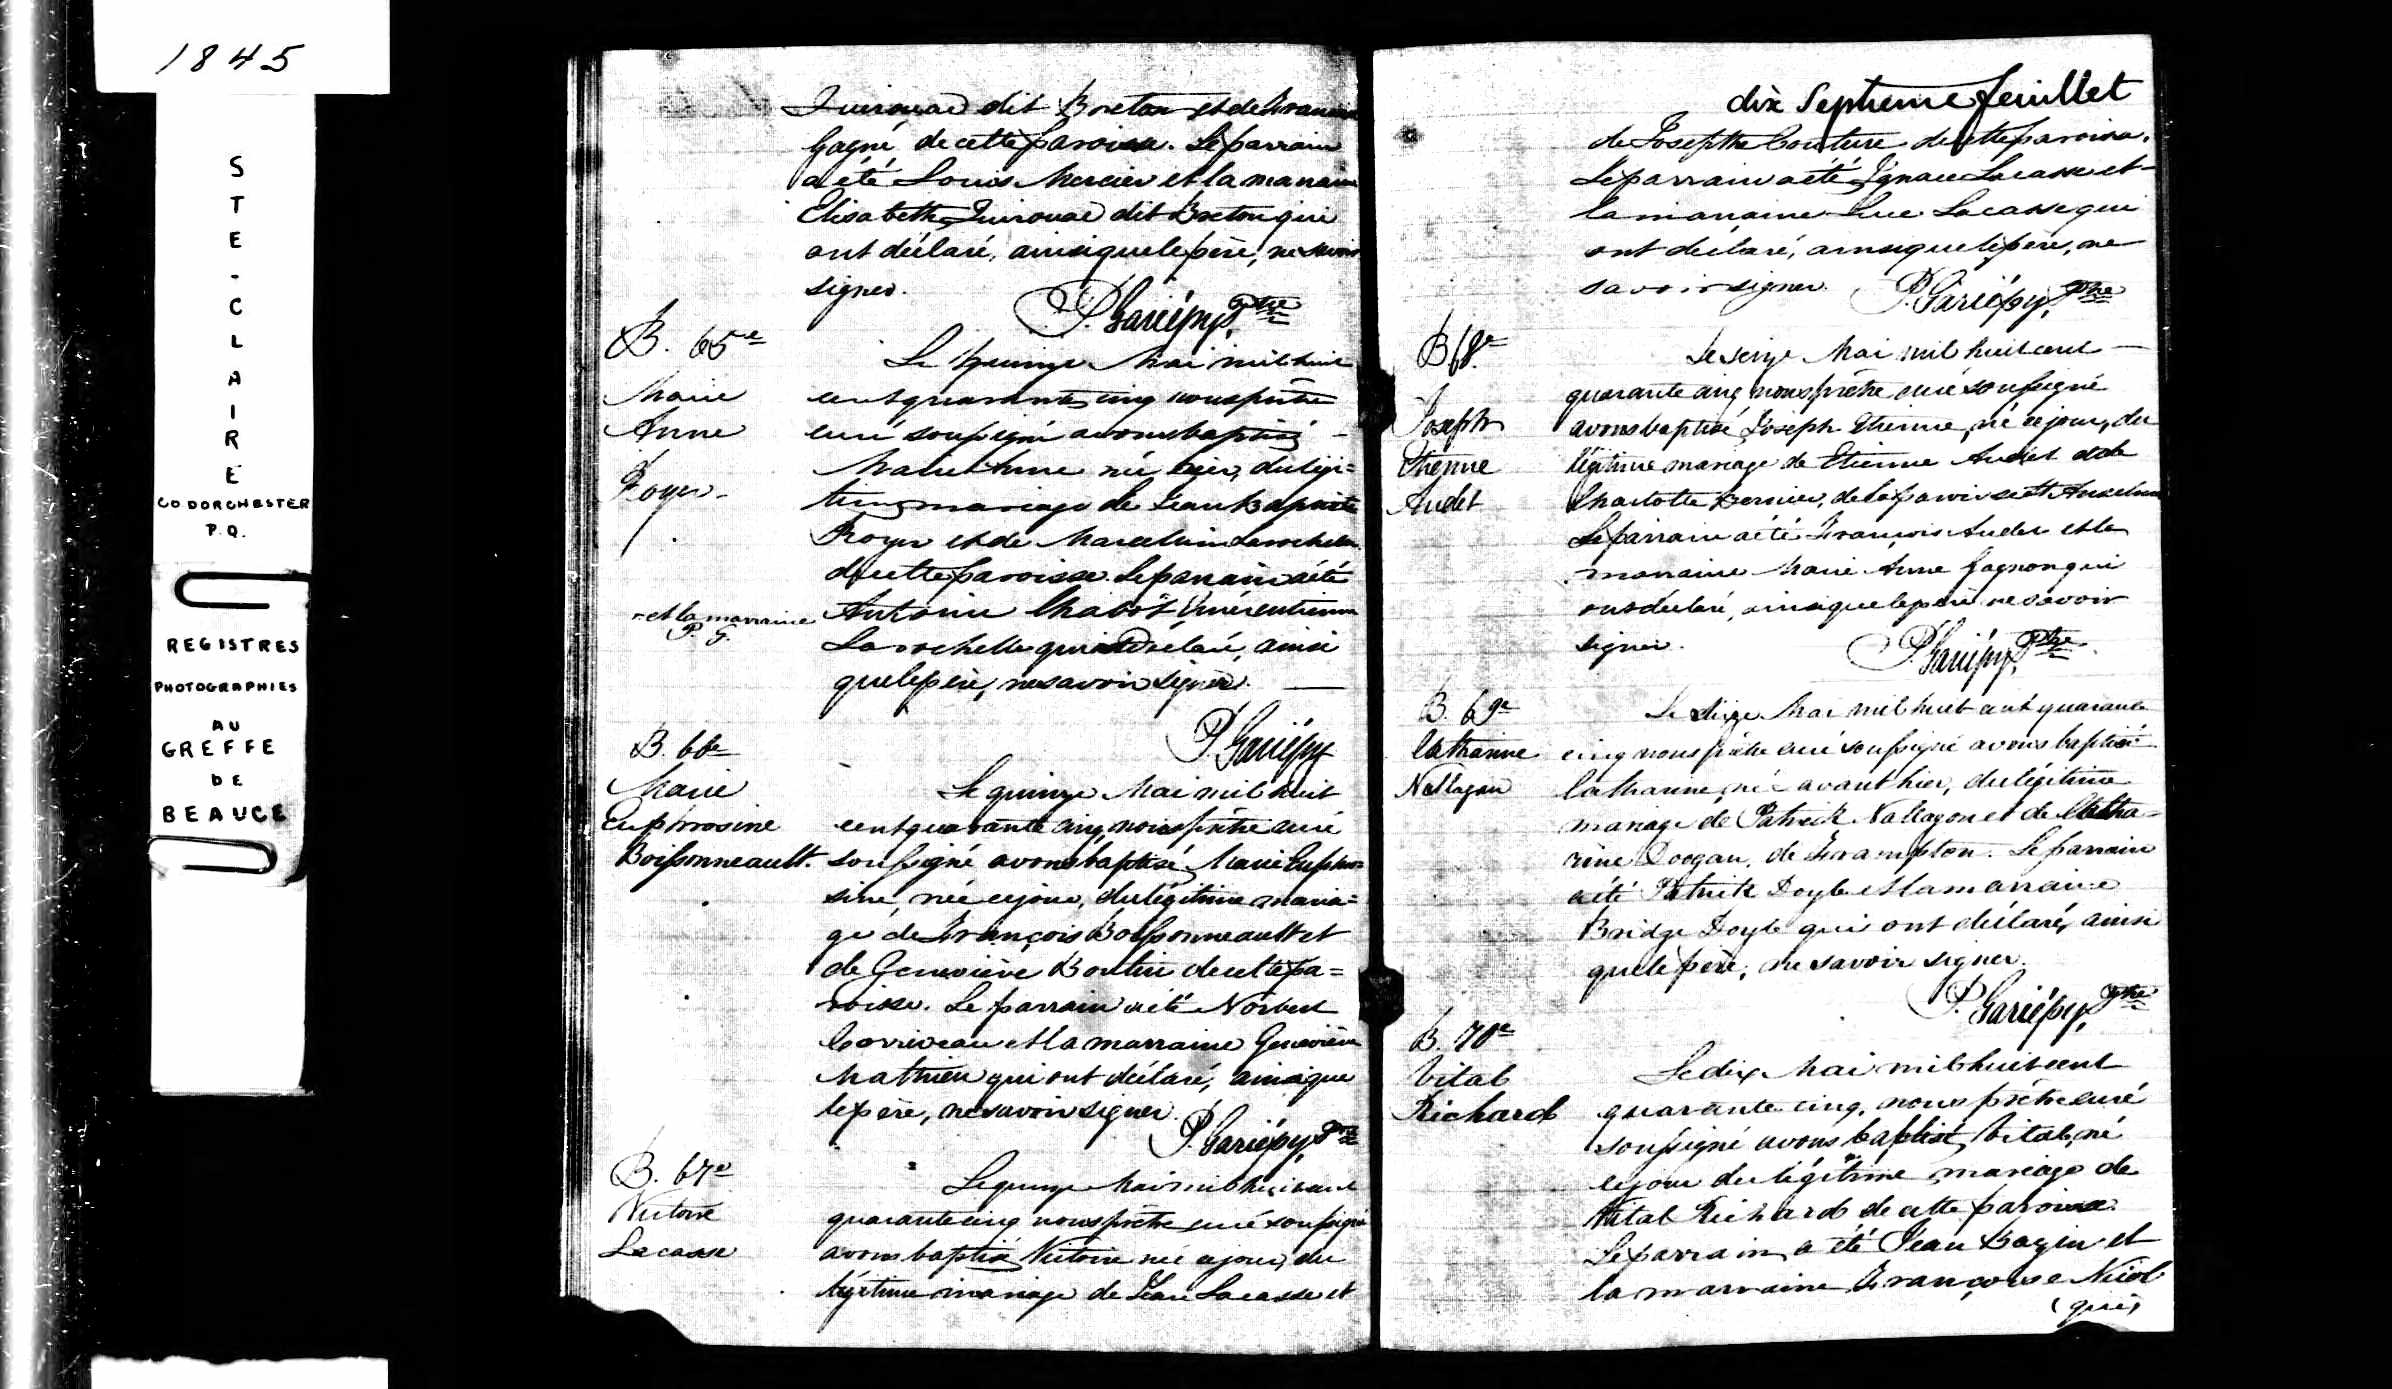 1845
STE-CLAIRE
CO DORCHESTER
P.Q.
REGISTRES
PHOTOGRAPHIÉS
AU
GREFFE
DE
BEAUCE
dit Breton et de
Gagné de cette paroisse. Le parrain
a été Louis Mercier et la marraine
Elisabeth dit Breton qui
ont déclaré, ainsi que le père, ne savoir
signer.
P. Gariépy, Ptre
B. 65e
Marie
Anne
Royer
Le quinze Mai mil huit
cent quarante cinq nous prêtre
curé soussigné avons baptisé
Marie Anne née hier, du légi=
time mariage de Jean Baptiste
Royer et de Marceline Larochelle
de cette paroisse. Le parrain a été
= et la marraine
P. G.
Antoine Chabot Émérentienne
Larochelle qui ont déclaré, ainsi
que le père, ne savoir signer.
P. Gariépy
B. 66e
Marie
Euphrosine
Boissonneault.
Le quinze Mai mil huit
cent quarante cinq, nous prêtre curé
soussigné avons baptisé Marie Euphro
sine, née ce jour, du légitime maria=
ge de François Boissonneault et
de Geneviève Boutin de cette pa=
roisse. Le parrain a été Norbert
Corriveau et la marraine Geneviève
Mathieu qui ont déclaré, ainsi que
le père, ne savoir signer.
P. Gariépy, Ptre
B. 67e
Victoire
Lacasse
Le quinze Mai mil huit cent
quarante cinq nous prêtre curé soussigné
avons baptisé Victoire née ce jour, du
légitime mariage de Jean Lacasse et
dix Septieme feuillet
de Josephte Couture de cette paroisse.
Le parrain a été Ignace Lacasse et
la marraine Luce Lacasse qui
ont déclaré, ainsi que le père, ne
savoir signer. P. Gariépy, Ptre
B 68e
Joseph
Etienne
Audet
Le seize Mai mil huit cent
quarante cinq nous prêtre curé soussigné
avons baptisé Joseph Etienne, né ce jour, du
légitime mariage de Etienne Audet et de
Charlotte Bernier, de la paroisse St Anselme
Le parrain a été François Audet et la
marraine Marie Anne Gagnon qui
ont déclaré, ainsi que le père ne savoir
signer.
P. Gariépy, Ptre
B. 69e
Catharine
Nallagan
Le Mai mil huit cent quarante
cinq nous prêtre curé soussigné avons baptisé
Catharine, née avant hier, du légitime
mariage de Patrick Nallagan et de Catha=
rine de Frampton. Le parrain
a été Patrick Doyle et la marraine
Bridge Doyle qui ont déclaré, ainsi
que le père, ne savoir signer.
P. Gariépy, Ptre
B. 70e
Vital
Richard
Le dix Mai mil huit cent
quarante cinq, nous prêtre curé
soussigné avons baptisé Vital, né
ce jour du légitime mariage de
Vital Richard de cette paroisse.
Le parrain a été Jean Bazin et
la marraine Françoise Nicol
(qui)